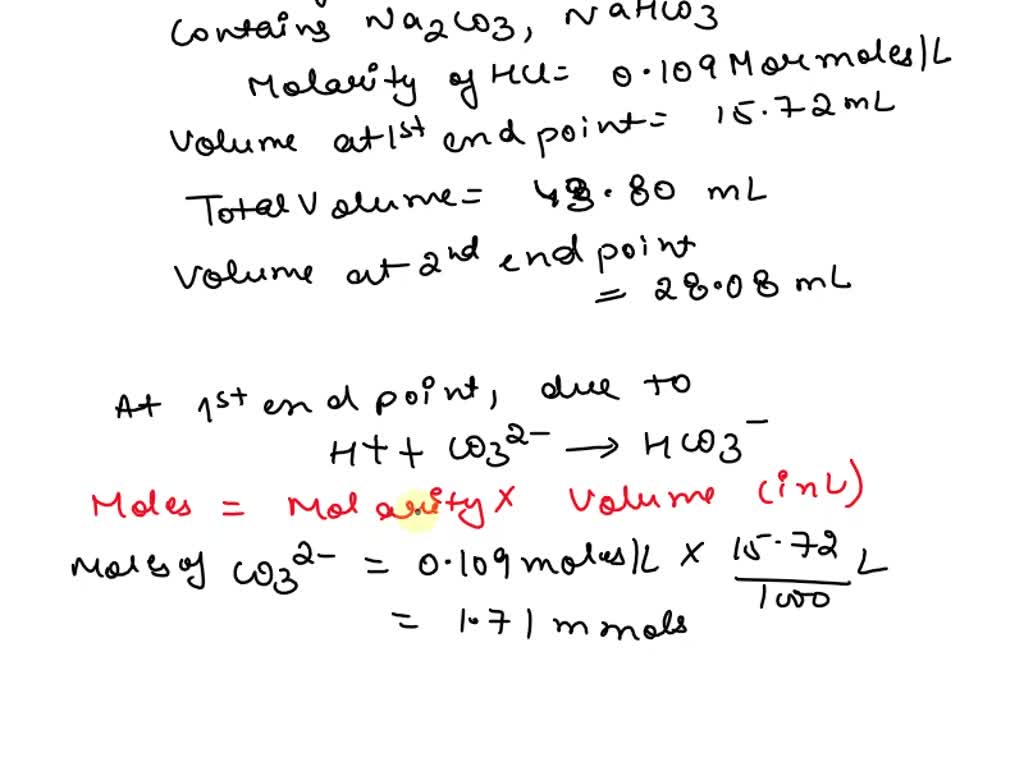 Contains Na2CO3, NaHCO3
Molarity of HCl = 0.109 M or moles/L
Volume at 1st end point = 15.72 mL
Total Volume = 43.80 mL
Volume at 2nd end point
= 28.08 mL
At 1st end point, due to
H+ + CO3 2- → HCO3 -
Moles = Molarity × Volume (in L)
Moles of CO3 2- = 0.109 moles/L × 15.72/1000 L
= 1.71 m mols